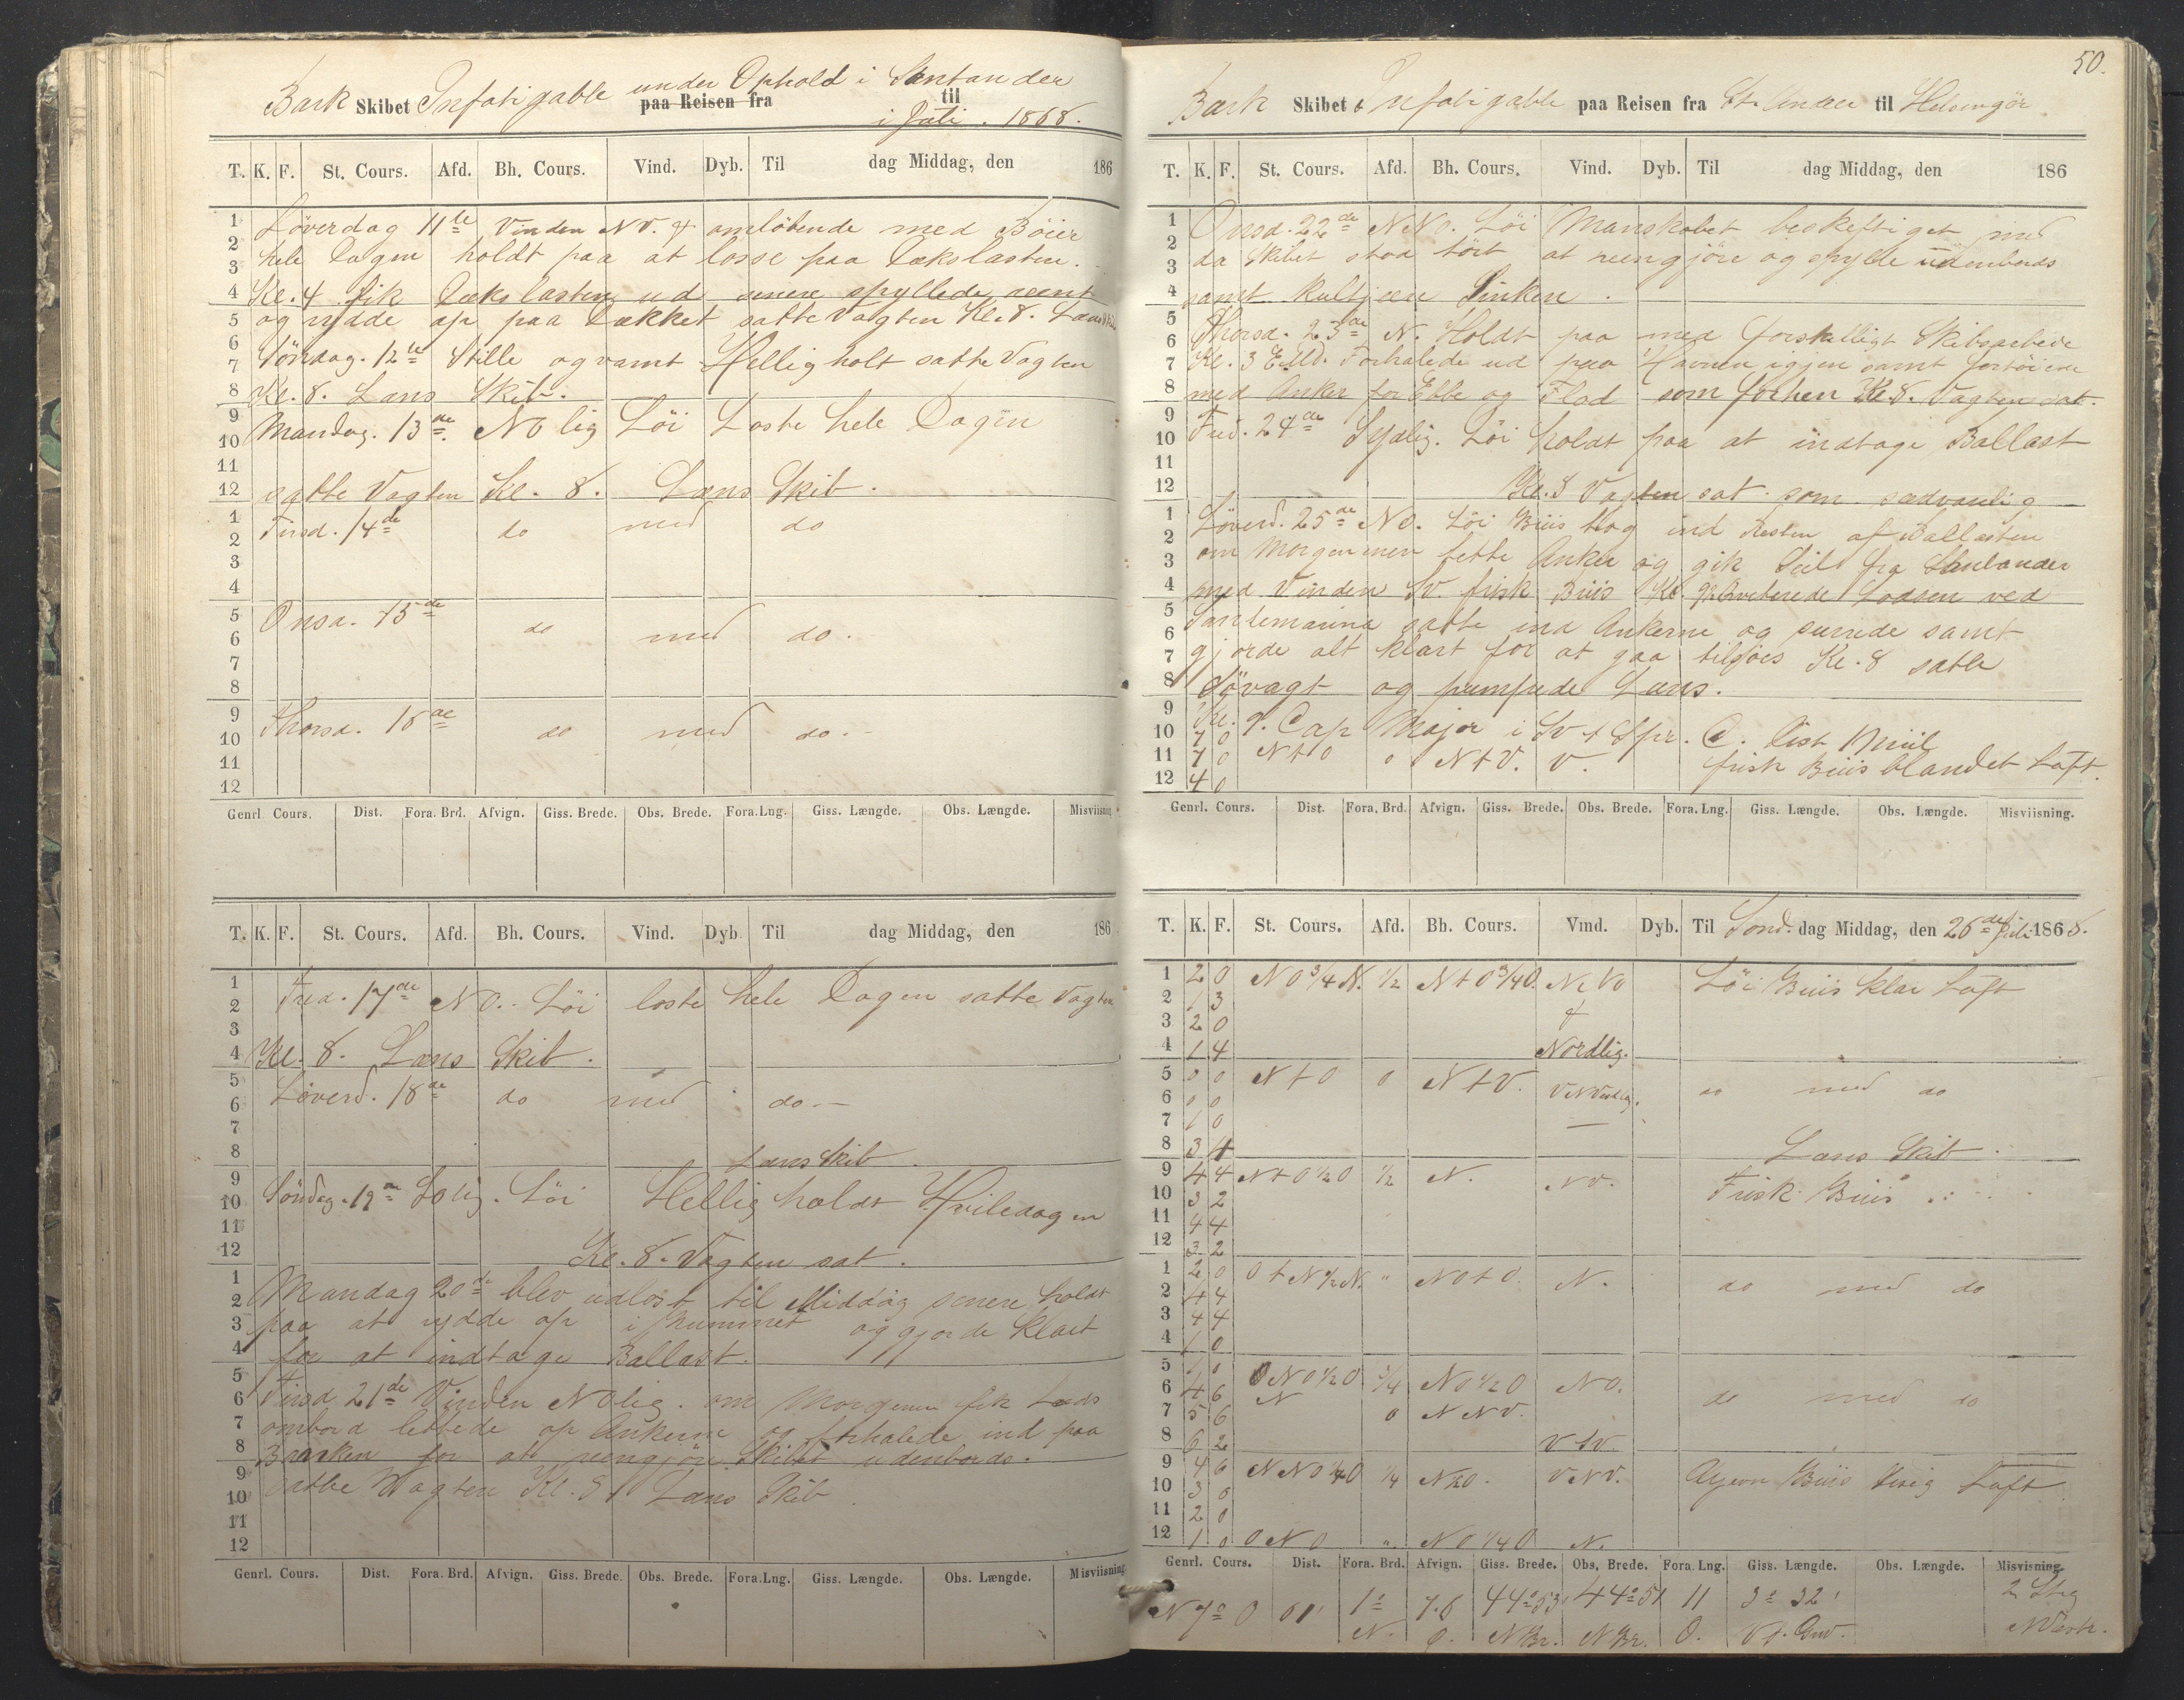 Bark Skibet Infatigable under Ophold i Santander
paa Reisen fra til
i Juli. 1868.
T. K. F. St. Cours. Afd. Bh. Cours. Vind. Dyb. Til dag Middag, den 186
Löverdag 11te Vinden NV. & omløbende med Böier
hele Dagen holdt paa at losse paa Dækslasten.
Kl. 4 fik Dækslasten ud senere spyllede rent
og rydde op paa Dækket satte Vagten Kl. 8. Læns Skib
Söndag. 12te Stille og varmt Hellig holt satte Vagten
Kl. 8. Læns Skib.
Mandag. 13de NO lig Löi Loste hele Dagen
satte Vagten Kl. 8. Læns Skib.
Tirsd. 14de do med do
Onsd. 15de do med do.
Thorsd. 16de do med do.
1 2 3 4 5 6 7 8 9 10 11 12
1 2 3 4 5 6 7 8 9 10 11 12
Genrl. Cours. Dist. Fora. Brd. Afvign. Giss. Brede. Obs. Brede. Fora. Lng. Giss. Længde. Obs. Længde. Misviisning
T. K. F. St. Cours. Afd. Bh. Cours. Vind. Dyb. Til dag Middag, den 186
Fred. 17de NO. Löi loste hele Dagen satte Vagten
Kl. 8. Læns Skib.
Löverd. 18de do med do
Læns Skib.
Söndag. 19de Solig. Löi Hellig holdt Hviledagen
Kl. 8. Vagten sat.
Mandag 20de blev udlost til Middag senere holdt
paa at rydde op i Rummet og gjorde klart
for at indtage Ballast.
Tirsd 21de Vinden NOlig. om Morgenen fik Lods
ombord lettede op Ankerne og forhalede ind paa
Banken for at reengjöre Skibet udenbords.
satte Vagten Kl. 8 Læns Skib
1 2 3 4 5 6 7 8 9 10 11 12
1 2 3 4 5 6 7 8 9 10 11 12
Genrl. Cours. Dist. Fora. Brd. Afvign. Giss. Brede. Obs. Brede. Fora. Lng. Giss. Længde. Obs. Længde. Misviisning
50.
Bark Skibet Infatigable paa Reisen fra St. Ander til Helsingör
T. K. F. St. Cours. Afd. Bh. Cours. Vind. Dyb. Til dag Middag, den 186
Onsd. 22de NNO. Löi Manskabet beskeftiget med
da Skibet stod tört at reengjöre og spylle udenbords
samt kultjære Sinken.
Thorsd. 23de N. Holdt paa med forskelligt Skibsarbeide
Kl. 3 E.Md. Forhalede ud paa Havnen igjen samt fortöiede
med Anker for Ebbe og Flod som forhen Kl. 8. Vagten sat.
Fred. 24de Sydlig. Löi holdt paa at indtage Ballast
Kl. 8 Vagten sat som sædvanlig
Löverd. 25de NO. Löi Briis tog ind Resten af Ballasten
om Morgenenen lette Anker og gik Seil fra Santander
med Vinden SV. frisk Briis Kl. qviterede Lodsen ved
satte ind Ankerne og surrede samt
gjorde alt klart for at gaa tilsöes Kl. 8 satte
Sövagt og pumpede Læns.
Kl. 9. Cap Major i SV Dist Miil
7 0
7 0 N t O 0 N t V. V. frisk Briis blandet Luft.
4 0
1 2 3 4 5 6 7 8 9 10 11 12
1 2 3 4 5 6 7 8 9 10 11 12
Genrl. Cours. Dist. Fora. Brd. Afvign. Giss. Brede. Obs. Brede. Fora. Lng. Giss. Længde. Obs. Længde. Misviisning.
T. K. F. St. Cours. Afd. Bh. Cours. Vind. Dyb. Til Sönd. dag Middag, den 26de Juli 1868.
1 2 0 NO 3/4 N. 1/2 N t O 3/4 O. Löi Briis klar Luft
2 1 3 &
3 2 0
4 1 4 Nordlig.
5 0 0 N t O 0 N t V. do med do
6 0 0
7 1 0
8 3 4 Læns Skib.
9 4 4 N t O 1/2 O 1/2 N. NV. Frisk Briis
10 3 2
11 4 4
12 3 2
1 2 0 O t N 1/2 N. " NO t O. N. do med do
2 4 4
3 4 4
4 1 0
5 1 0 ONO 1/2 O 3/4 NO 1/2 O NO. do med do
6 4 6 N 0 NNV.
7 5 6
8 6 2
9 4 6 NNO 1/4 O 1/4 VNV. Ujevn Briis Luft
10 3 0
11 2 0
12 1 0 ONO " NO 1/4 O N.
Genrl. Cours. Dist. Fora. Brd. Afvign. Giss. Brede. Obs. Brede. Fora. Lng. Giss. Længde. Obs. Længde. Misvisning.
N 7° O 61' 1° 7.6 44°53' 44°51 11 3° 32' 2 Streg
N. O. NBr. NBr. O. V. f. Gnv. NVestr.